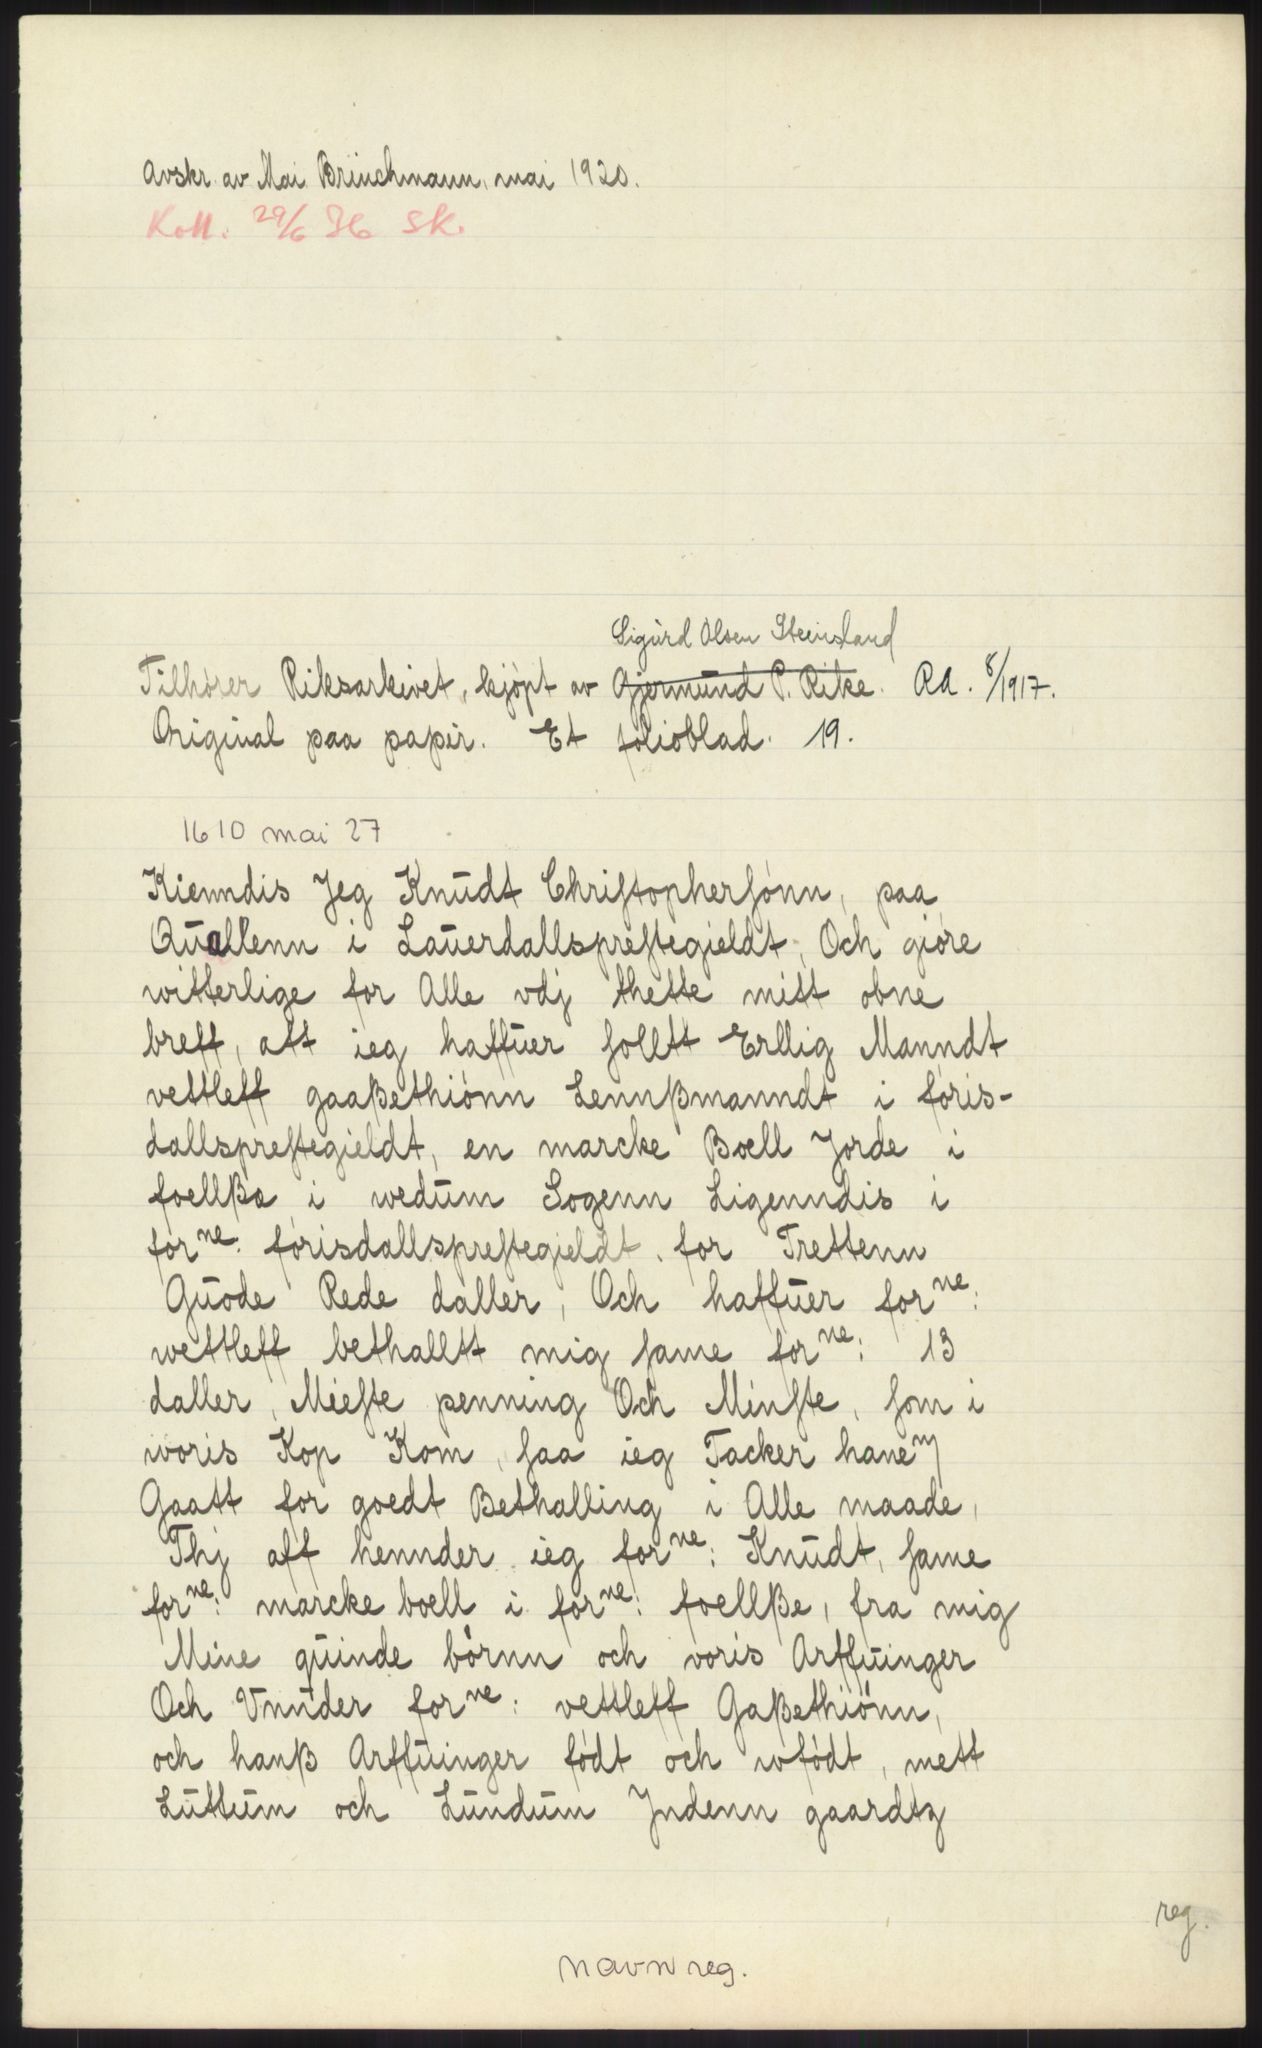 Avskr. av Mai Brinchmann, mai 1920.
Koll. 29/6 36 SK.
Sigurd Olsen Steinsland
Tilhører Riksarkivet, kjöpt av Gjermund P. Rike. RA. 8/1917.
Original paa papir. Et folioblad. 19.
1610 mai 27
Kienndis Jeg Knudt Chriſtopherſónn, paa
Quallenn i Lauerdallspreſtegieldt, Och gióre
witterlige for Alle vdj thette mitt obne
breff, att ieg haffuer ſolltt Erllig Manndt
vettleff gaaßethiónn Lennßmanndt i fóris-
dallspreſtegieldt, en marcke Boell Jorde i
foellße i wedum Sogenn Ligenndis i
forne: fórisdallspreſtegieldt, for Trettenn
Guode Rede daller, Och haffuer forne:
wettleff bethalltt mig ſame forne: 13
daller, Méeſte penning Och Minſte, ſom i
woris Kop Kom, ſaa ieg Tacker hanem
Gaatt for goedt Bethalling i Alle maade,
Thj aff hennder ieg forne: Knudt, ſame
forne: marcke boell i forne: foellße, fra mig
Mine quinde bórnn och voris Arffuinger
Och Vnnder forne: vettleff Gaßethiónn,
och hanß Arffuinger fódt och wfódt, mett
Luttum och Lundum Jndenn gaardtz
reg.
navnreg.